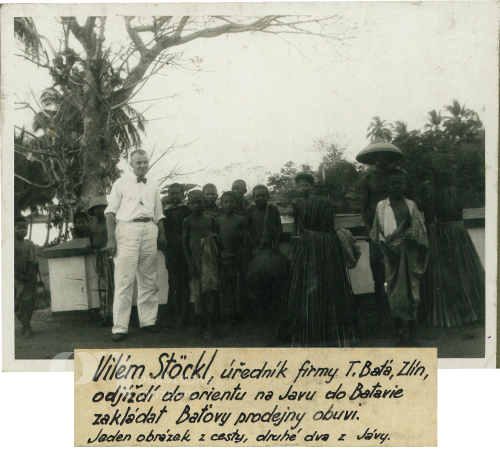 Vilém Stöckl, úředník firmy T. Baťa, Zlín,
odjíždí do orientu na Javu do Batavie
zakládat Baťovy prodejny obuvi.
Jeden obrázek z cesty, druhé dva z Jávy.